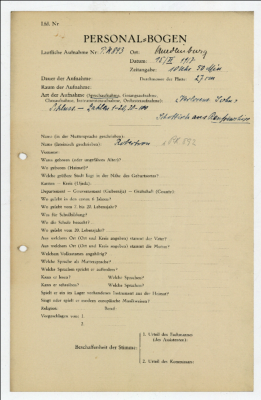 Lfd. Nr
PERSONAL-BOGEN
Lautliche Aufnahme Nr.: P.K.893 Ort:
Datum: 15/II 1917
Zeitangabe: 10 Uhr 50 Min
Dauer der Aufnahme: Durchmesser der Platte: 27 cm
Raum der Aufnahme:
Art der Aufnahme (Sprechaufnahme, Gesangsaufnahme, Choraufnahme, Instrumentenaufnahme, Orchesteraufnahme):
Zahlen 1-20,
Name (in der Muttersprache geschrieben):
Name (lateinisch geschrieben): Robertson PK 892
Vorname:
Wann geboren (oder ungefähres Alter)?
Wo geboren (Heimat)?
Welche größere Stadt liegt in der Nähe des Geburtsortes?
Kanton — Kreis (Ujedz):
Department — Gouvernement (Gubernija) — Grafschaft (County):
Wo gelebt in den ersten 6 Jahren?
Wo gelebt vom 7. bis 20. Lebensjahr?
Was für Schulbildung?
Wo die Schule besucht?
Wo gelebt vom 20. Lebensjahr?
Aus welchem Ort (Ort und Kreis angeben) stammt der Vater?
Aus welchem Ort (Ort und Kreis angeben) stammt die Mutter?
Welchem Volksstamm angehörig?
Welche Sprache als Muttersprache?
Welche Sprachen spricht er außerdem?
Kann er lesen? Welche Sprachen?
Kann er schreiben? Welche Sprachen?
Spielt er ein im Lager vorhandenes Instrument aus der Heimat?
Singt oder spielt er modern europäische Musikweisen?
Religion: Beruf:
Vorgeschlagen von: 1.
2.
Beschaffenheit der Stimme:
1. Urteil des Fachmannes
(des Assistenten):
2. Urteil des Kommissars: